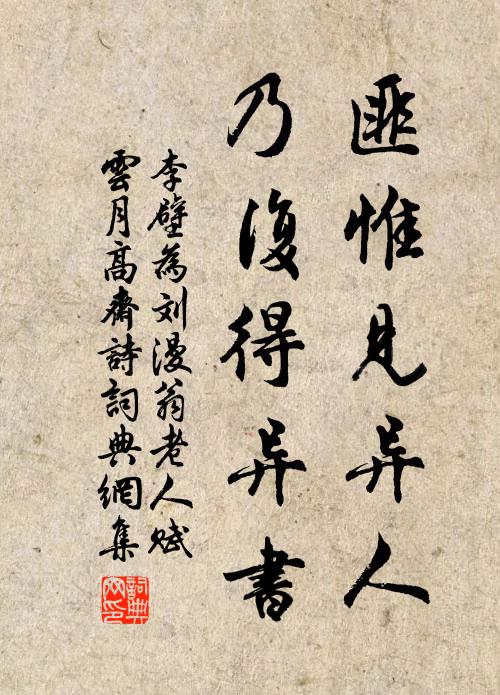 匪惟見异人
乃復得异書
李壁為刘漫翁老人赋
雲月高齋詩詞典網集
詞典网印